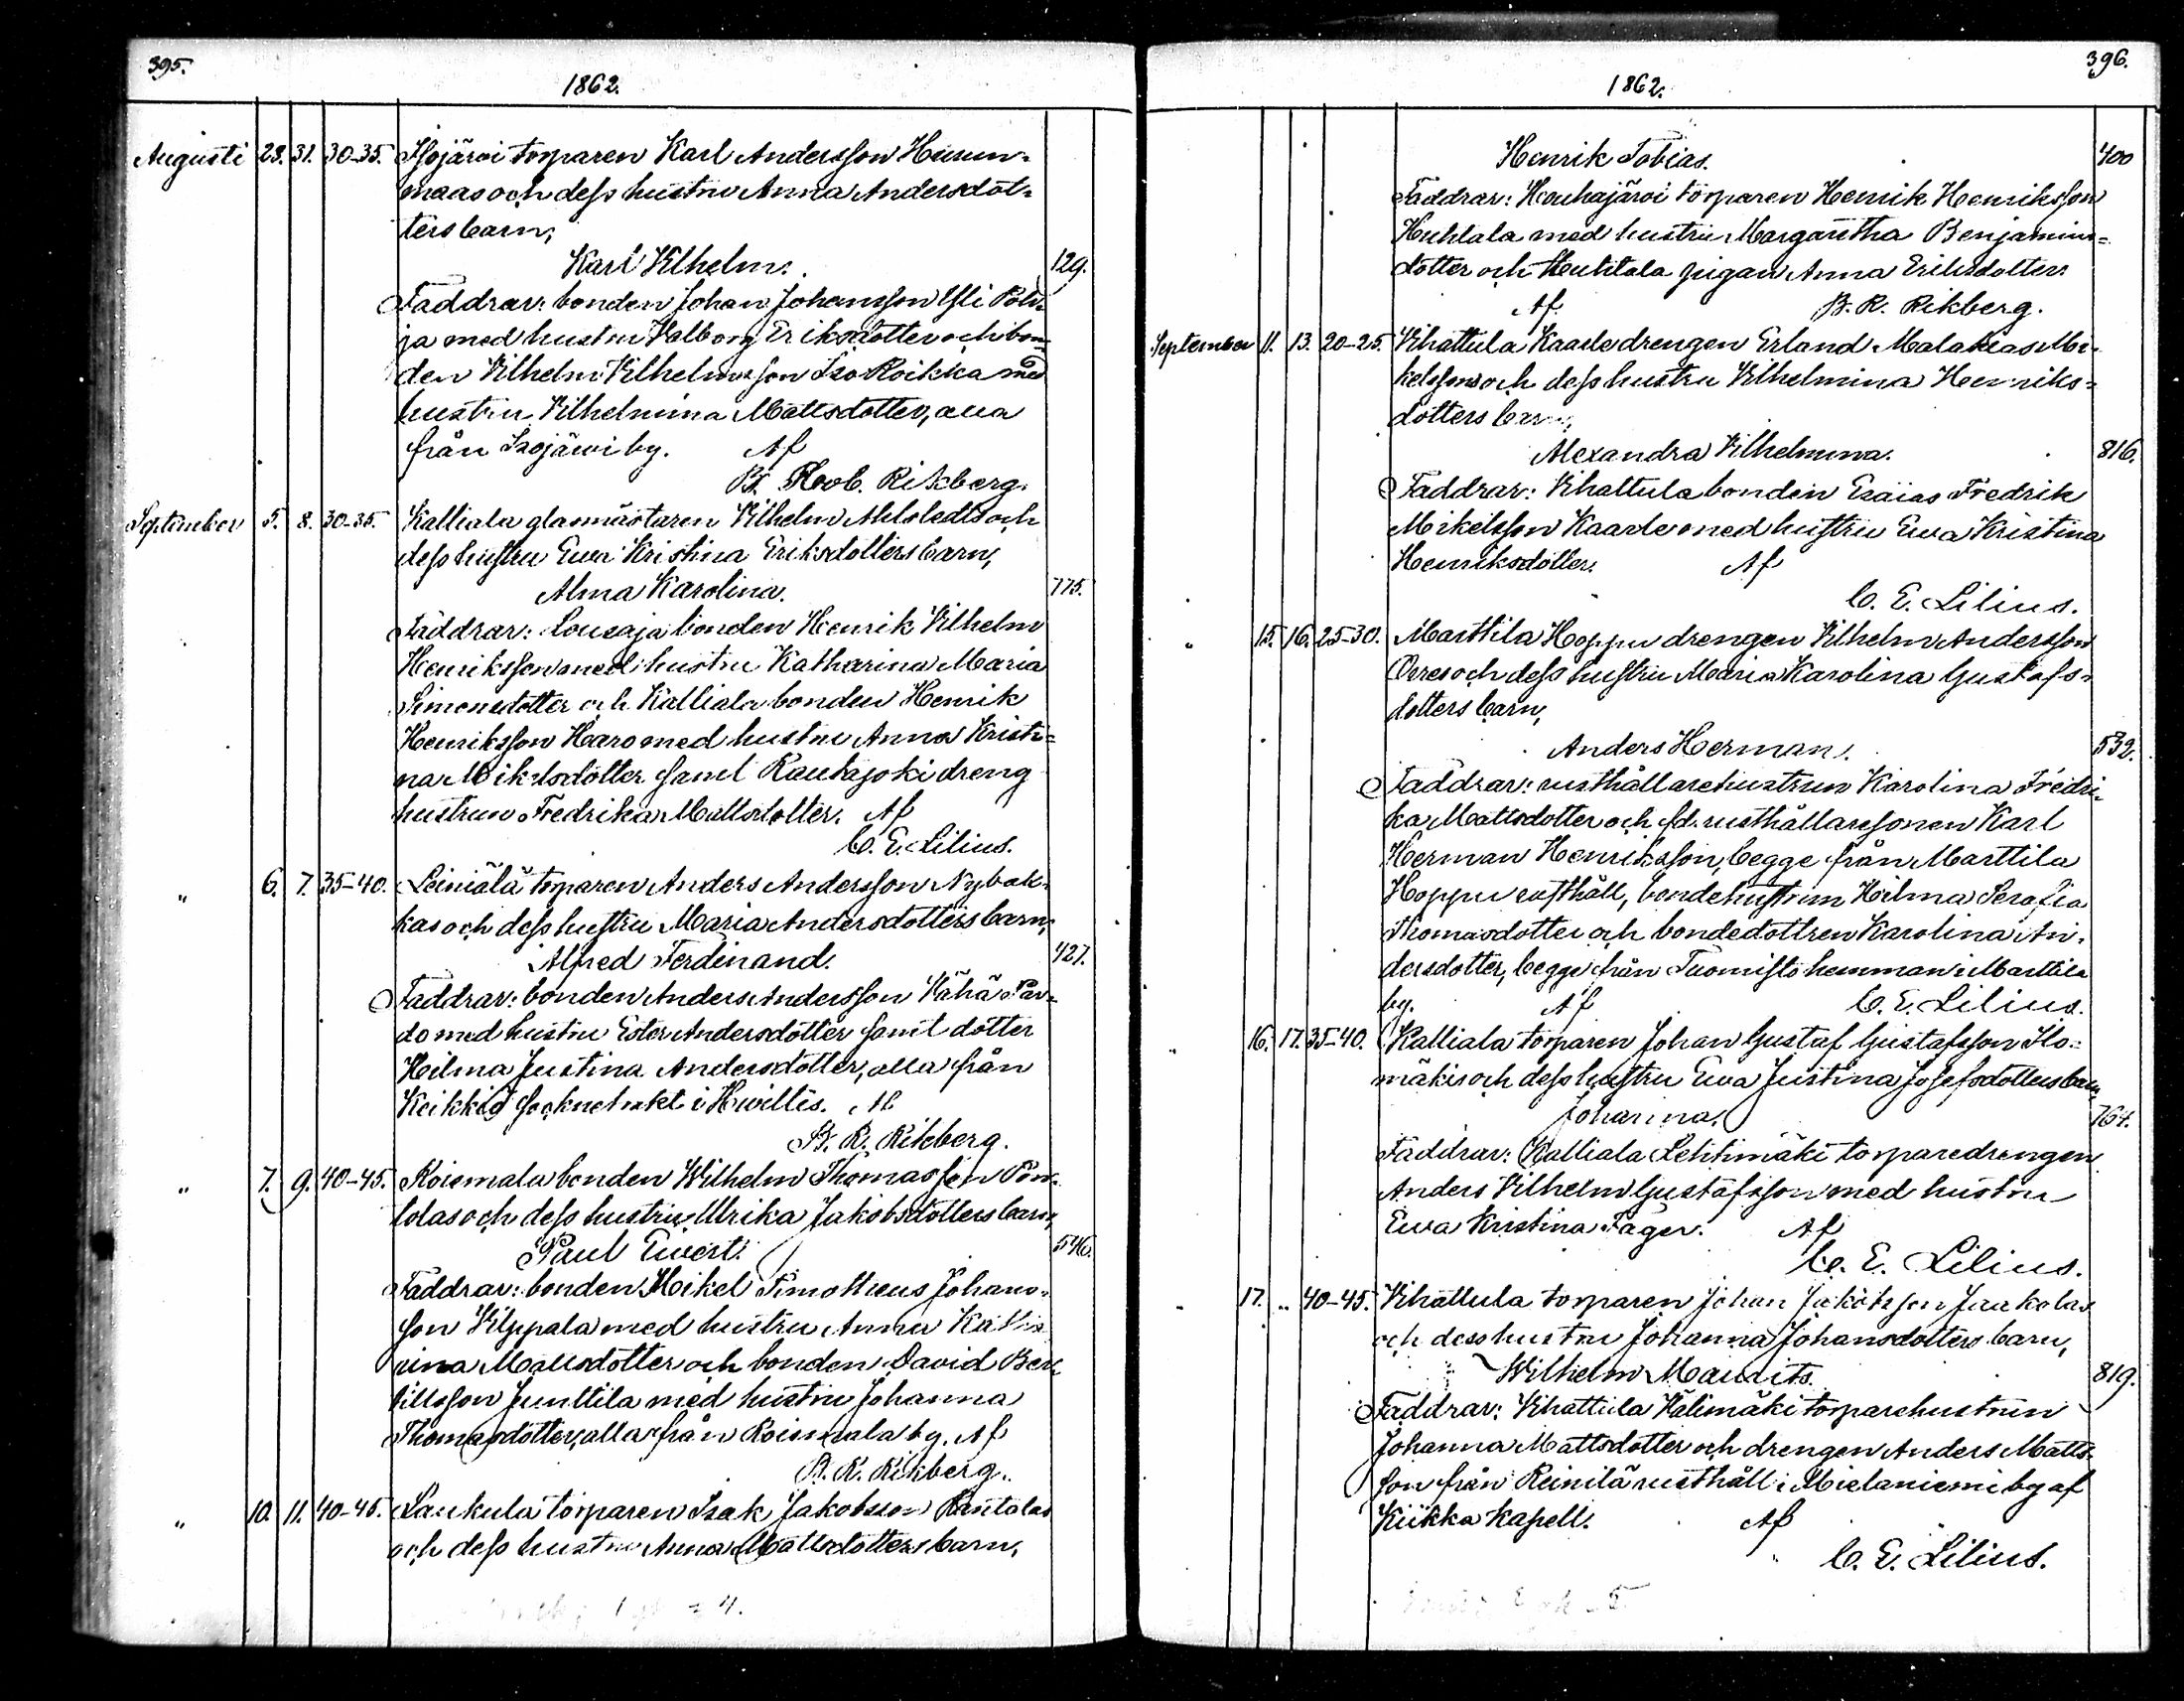 395.
1862.
Augusti 28. 31. 30-35. Isojärvi torparen Karl Andersson Huum-
maas och dess hustru Anna Andersdot-
ters barn,
Karl Vilhelm. 129.
Faddrar: bonden Johan Johansson Yli Poh-
ja med hustru Valborg Eriksdotter och bon-
den Vilhelm Vilhelmsson Iso Roikka med
hustru Vilhelmina Mattsdotter, alla
från Isojärvi by. Af
Fr. Rob. Rikberg.
September 5. 8. 30-35. Kalliala glasmästaren Vilhelm Ahlstedts och
dess hustru Eva Kristina Eriksdotters barn,
Alma Karolina. 775.
Faddrar: Lousaja bonden Henrik Vilhelm
Henriksson med hustru Katharina Maria
Simonsdotter och Kalliala bonden Henrik
Henriksson Haro med hustru Anna Kristi-
na Mikelsdotter samt Rautajoki dreng
hustrun Fredrika Mattsdotter. Af
C. E. Lilius.
" 6. 7. 35-40. Leiniälä torparen Anders Andersson Nybak-
kas och dess hustru Maria Andersdotters barn,
Alfred Ferdinand. 427.
Faddrar: bonden Anders Andersson Vähä Par-
do med hustru Ester Andersdotter samt dotter
Hilma Justina Andersdotter, alla från
Keikkis i Hvittis. Af
Fr. R. Rikberg.
" 7. 9. 40-45. Roismala bonden Wilhelm Thomasson
och dess hustru Ulrika Jakobsdotters barn,
Paul Evert. 546.
Faddrar: bonden Mikel Timotheus Johans-
son Vilppala med hustru Anna Katha
rina Mattsdotter och bonden David Ber
tillsson Junttila med hustru Johanna
Thomasdotter, alla från Roismala by. Af
Fr. R. Rikberg.
" 10. 11. 40-45. Laukula torparen Isak Jakobsson Rantalas
och dess hustru Anna Mattsdotters barn,
396.
1862.
Henrik Tobias. 400
Faddrar: Houhajärvi torparen Henrik Henriksson
Huhtala med hustru Margaretha Benjamins-
dotter och Huhtala pigan Anna Eriksdotter.
Af Fr. R. Rikberg.
September 11. 13. 20-25. Vihattula Kaarle drengen Erland Malakias Mi-
kelssons och dess hustru Vilhelmina Henriks-
dotters barn,
Alexandra Vilhelmina. 816.
Faddrar: Vihattula bonden Esaias Fredrik
Mikelsson Kaarle med hustru Eva Kristina
Henriksdotter. Af
C. E. Lilius.
" 15. 16. 25-30. Marttila Hoppu drengen Vilhelm Andersson
och dess hustru Maria Karolina Gustafs-
dotters barn,
Anders Herman. 532.
Faddrar: rusthållarehustrun Karolina Fredri-
ka Mattsdotter och fd. rusthållaresonen Karl
Herman Henriksson, begge från Marttila
Hoppu rusthåll, bondehustrun Hilma Serafia
Thomasdotter och bondedottren Karolina An-
dersdotter, begge från Tuomisto hemman i Marttila
by. Af C. E. Lilius.
" 16. 17. 35-40. Kalliala torparen Johan Gustaf Gustafsson Ilo-
mäkis och dess hustru Eva Justina Josefsdotters barn,
Johanna. 764.
Faddrar: Kalliala Lehtimäki torparedrengen
Anders Vilhelm Gustafsson med hustru
Eva Kristina Fager. Af
C. E. Lilius.
" 17. " 40-45. Vihattula torparen Johan Jakobsson Jaakolas
och dess hustru Johanna Johansdotters barn,
Wilhelm Maurits. 819.
Faddrar: Vihattula Välimäki torparehustrun
Johanna Mattsdotter och drengen Anders Matts-
son från Reinilä rusthåll i Mielaniemi by af
Kiikka kapell. Af
C. E. Lilius.